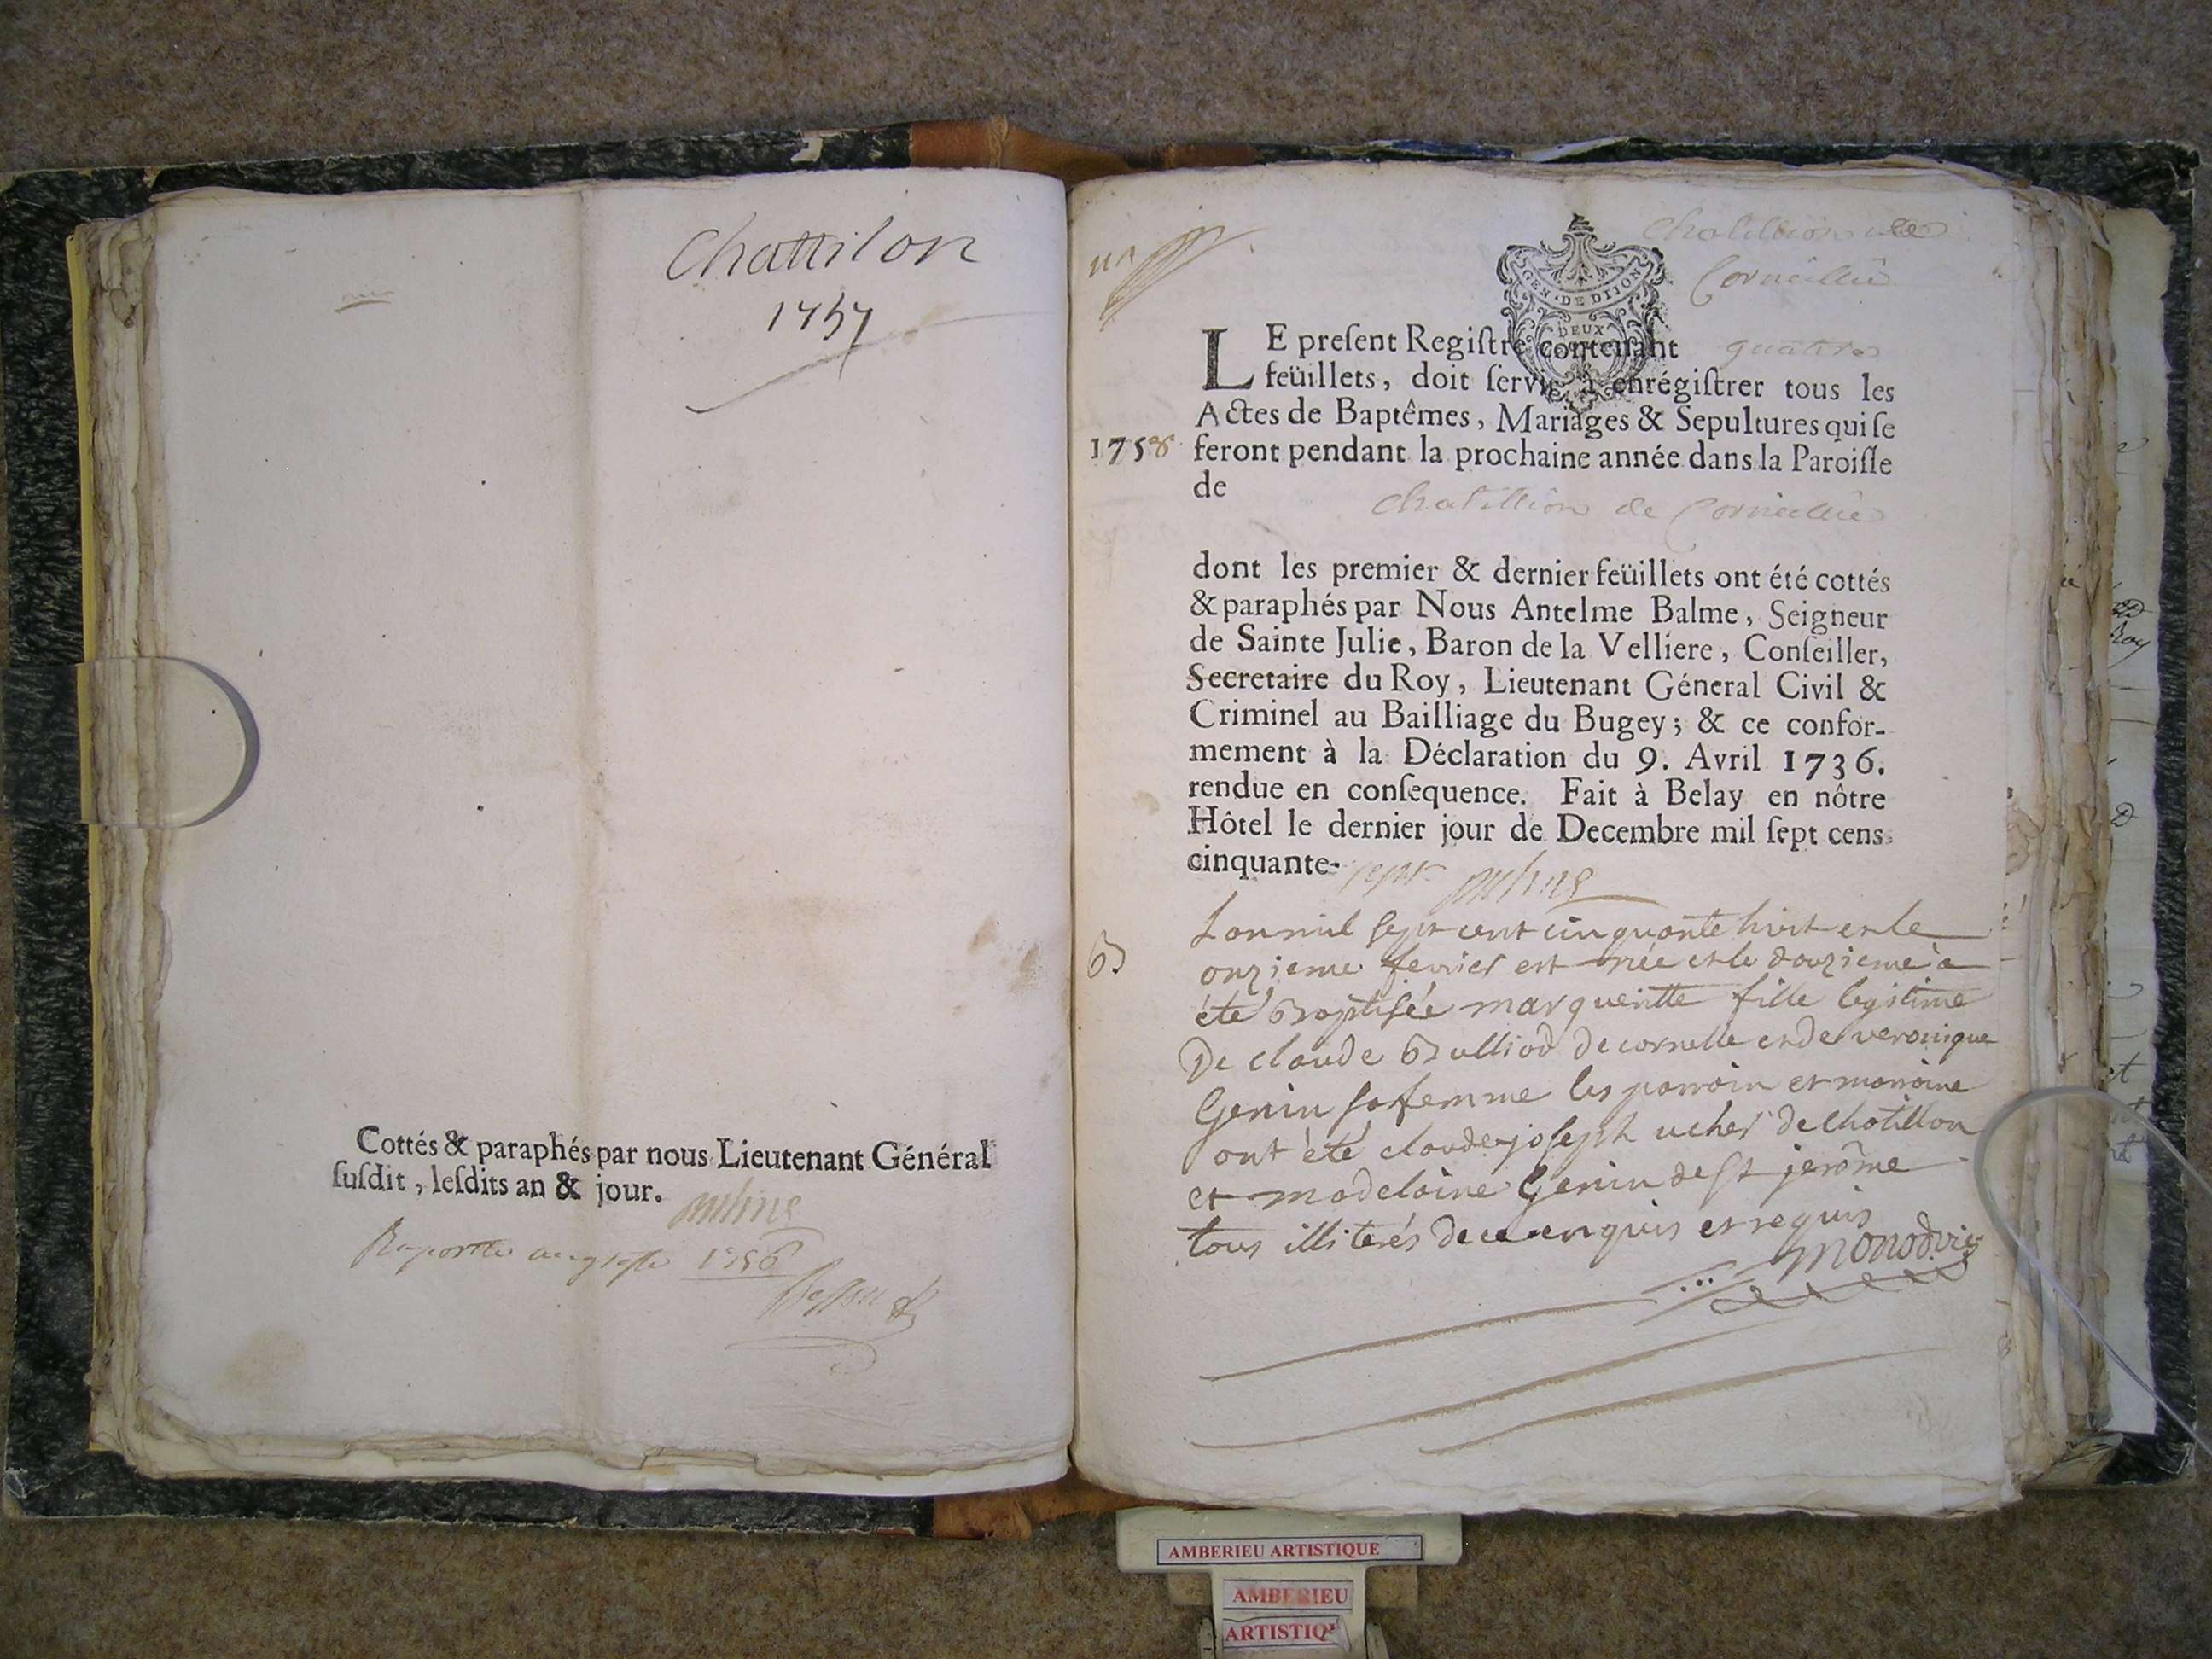 Chattilon
1757
Cottés & paraphés par nous Lieutenant Général
ſuſdit, leſdits an & jour.
1756
un
Chatillion de
Corneille
GEN · DE DIJON
DEUX
LE preſent Regiſtre contenant quatre
feüillets, doit ſervir à enrégiſtrer tous les
Actes de Baptêmes, Mariages & Sepultures qui ſe
1758 feront pendant la prochaine année dans la Paroiſſe
de
Chatillion de Corneille
dont les premier & dernier feüillets ont été cottés
& paraphés par Nous Antelme Balme, Seigneur
de Sainte Julie, Baron de la Velliere, Conſeiller,
Secretaire du Roy, Lieutenant Géneral Civil &
Criminel au Bailliage du Bugey; & ce confor-
mement à la Déclaration du 9. Avril 1736.
rendue en conſequence. Fait à Belay en nôtre
Hôtel le dernier jour de Decembre mil ſept cens
cinquante- sept
B
Lan mil sept cent cinquante huit et le
onzieme fevrier est née et le douzieme a
été Baptisée margueritte fille legitime
De claude Bulliod de cornelle et de veronique
Genin sa femme les parrain et marraine
ont été claude-joseph ucher de chatillon
et madelaine Genin de st jerôme
tous illiterés de ce enquis et requis
monod vic
AMBERIEU ARTISTIQUE
AMBERIEU
ARTISTIQ